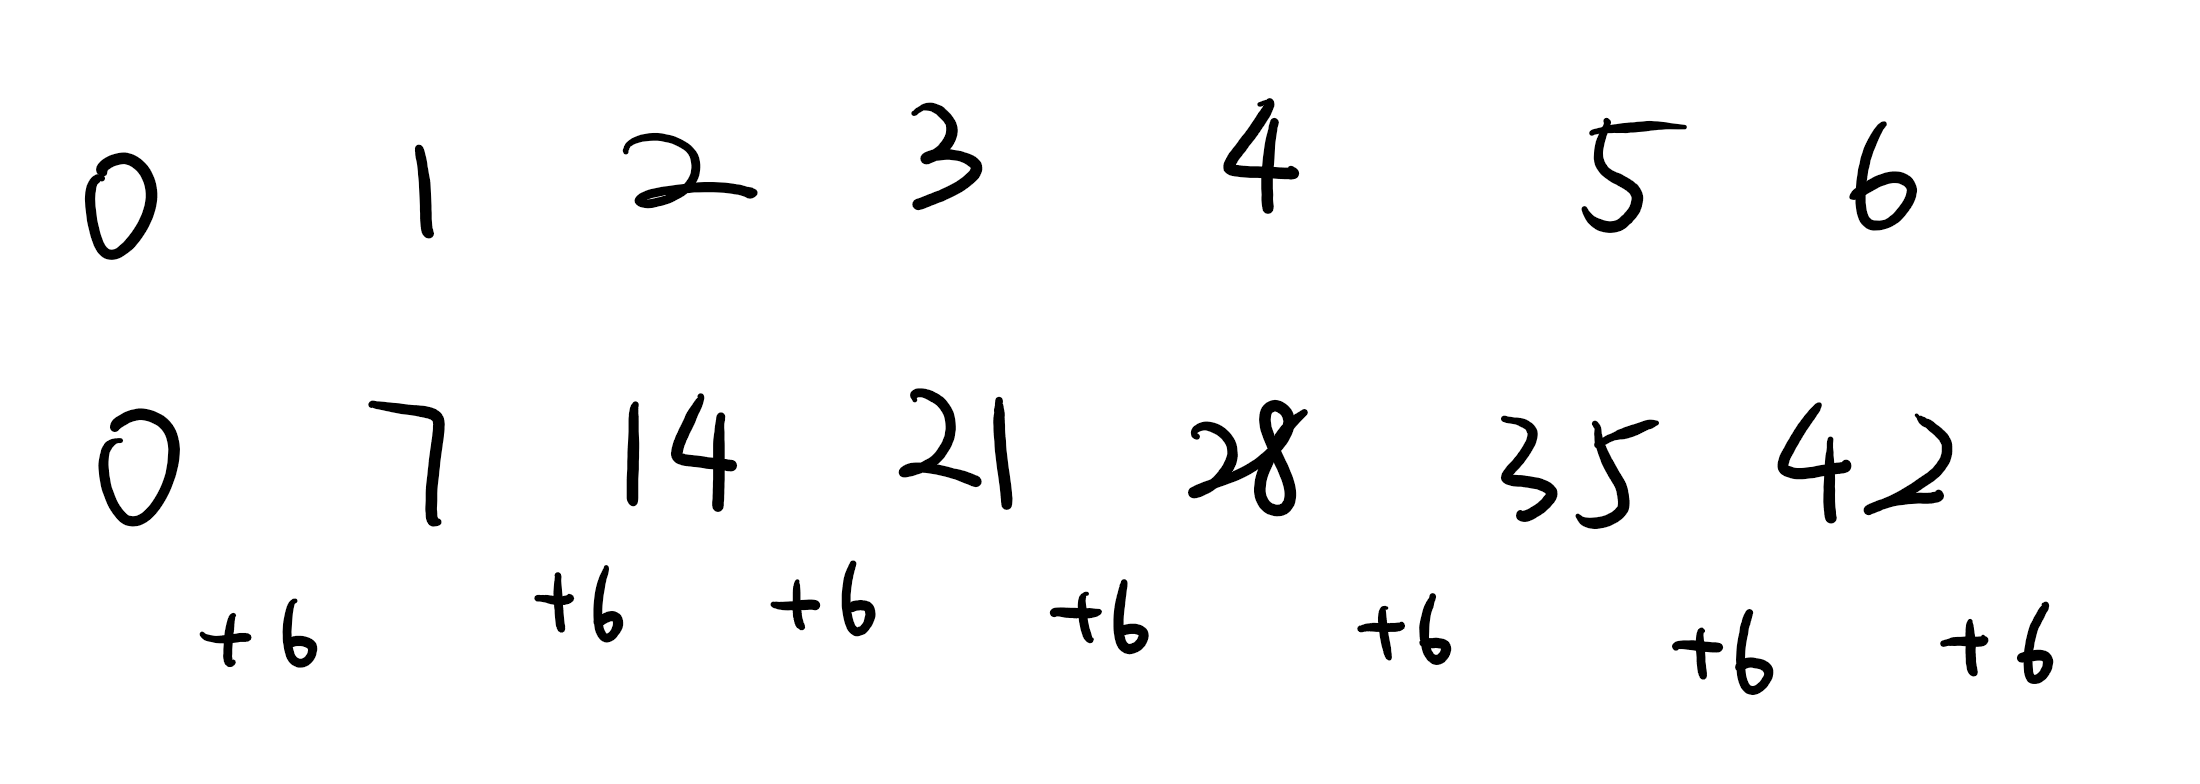 0 1 2 3 4 5 6
0 7 14 21 28 35 42
+6 +6 +6 +6 +6 +6 +6